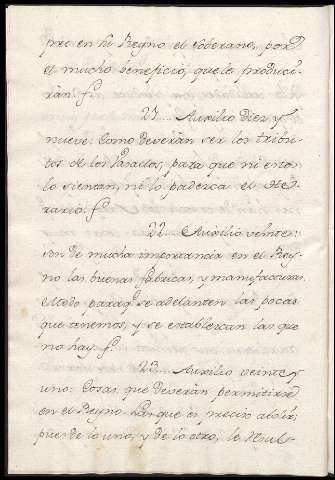 pre en su Reyno el Soberano, por
el mucho beneficio, que le produci-
ràn.
21... Auxilio diez y
nueve: Como deveràn ser los tribu-
tos de los Vasallos, para que ni estos
lo sientan, ni lo padezca el He-
rario.
22... Auxilio veinte:
son de mucha importancia en el Rey-
no las buenas fabricas, y manufacturas.
Modo paraq.e se adelanten las pocas
que tenemos, y se establezcan las que
no hay.
23... Auxilio veinte y
uno: Cosas, que deveràn permitirse
en el Reyno. Las que es preciso abolir,
pues de lo uno, y de lo otro, le